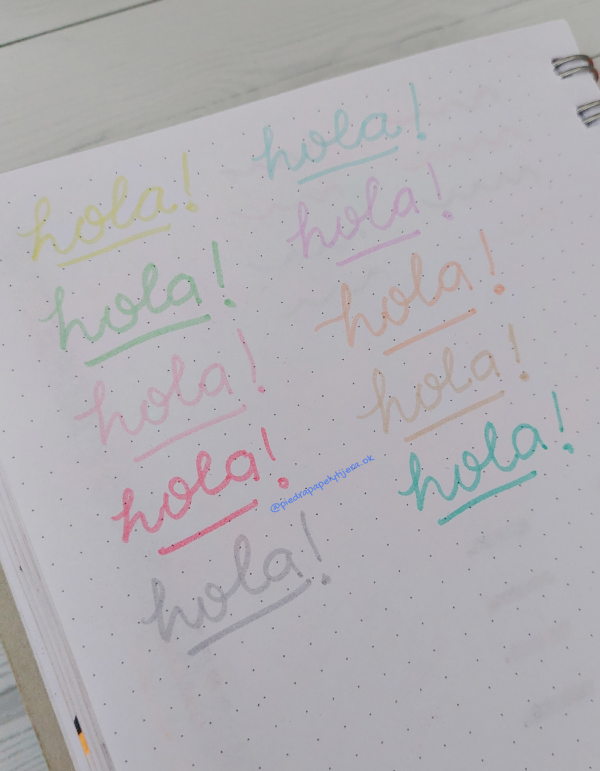 hola!
hola!
hola!
hola!
hola!
hola!
hola!
hola!
hola!
@piedrapapelytijera.ok
hola!